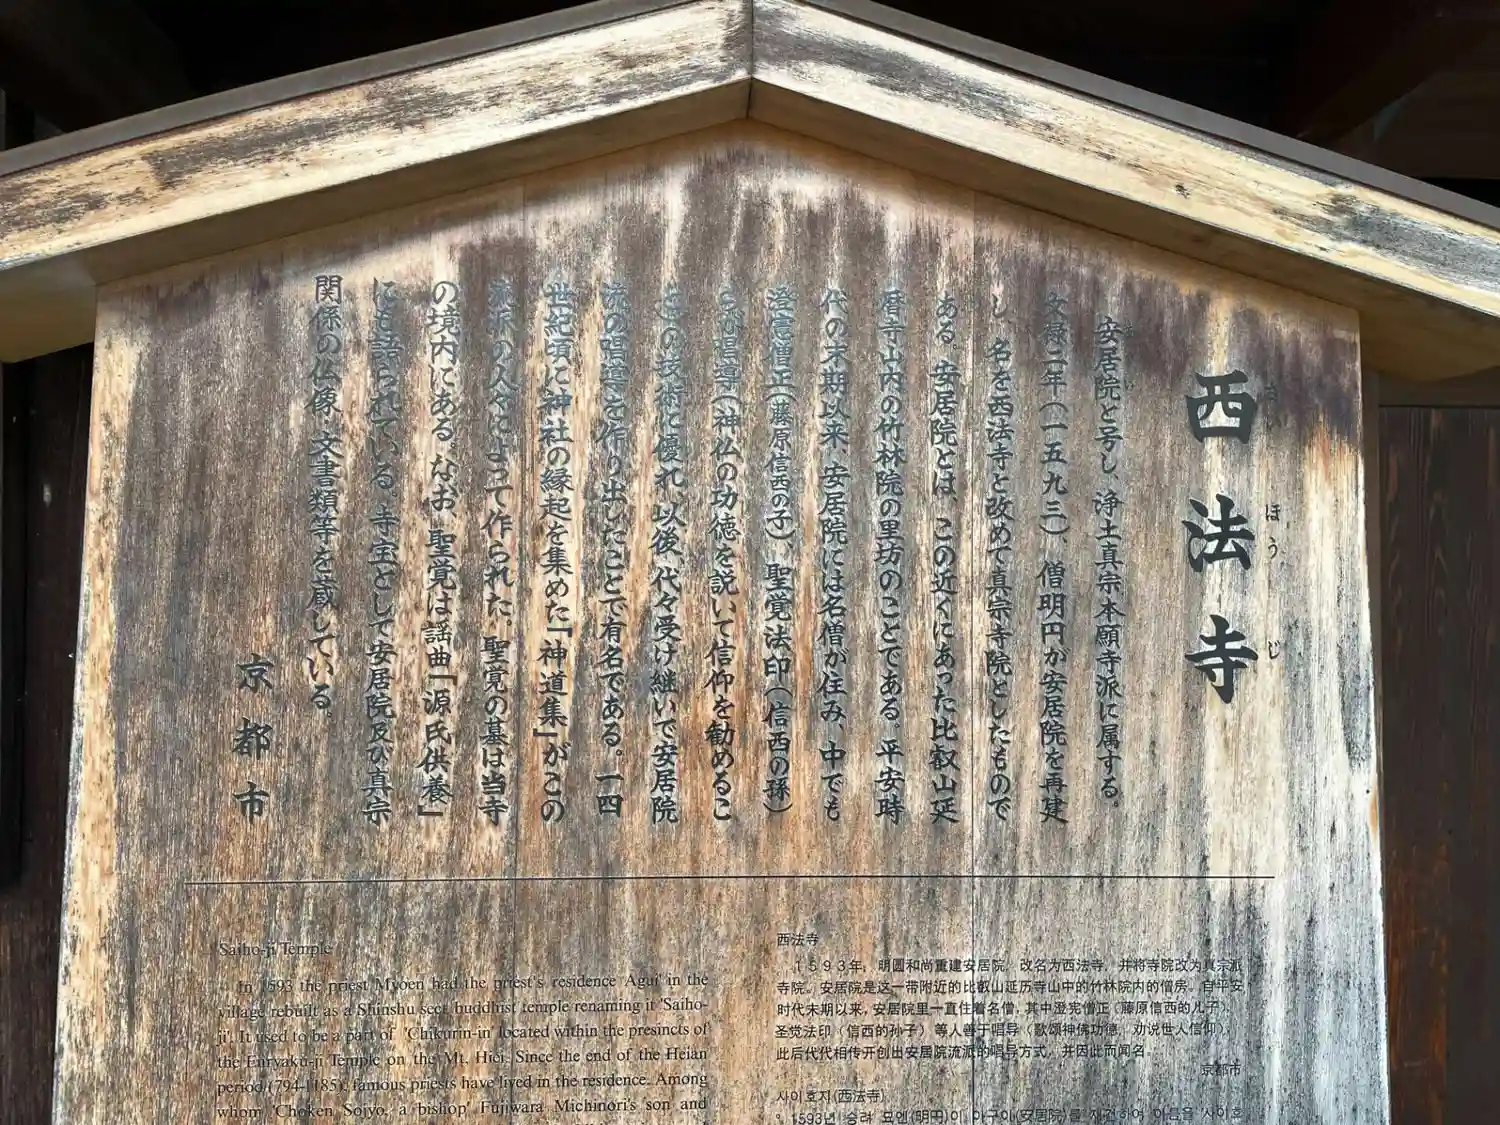 西法寺
さいほうじ
安居院と号し、浄土真宗本願寺派に属する。
文禄二年(一五九三)、僧明円が安居院を再建
し、名を西法寺と改めて真宗寺院としたもので
ある。安居院とは、この近くにあった比叡山延
暦寺山内の竹林院の里坊のことである。平安時
代の末期以来、安居院には名僧が住み、中でも
澄憲僧正(藤原信西の子)、聖覚法印(信西の孫)
らが唱導(神仏の功徳を説いて信仰を勧めるこ
と)の技術に優れ、以後、代々受け継いで安居院
流の唱導を作り出したことで有名である。一四
世紀頃に神社の縁起を集めた「神道集」がこの
流派の人々によって作られた。聖覚の墓は当寺
の境内にある。なお、聖覚は謡曲「源氏供養」
にも語られている。寺宝として安居院及び真宗
関係の仏像・文書類等を蔵している。
京都市
Saiho-ji Temple
In 1593 the priest Myoen had the priest's residence 'Agui' in the
village rebuilt as a Shinshu sect buddhist temple renaming it 'Saiho-
ji'. It used to be a part of 'Chikurin-in' located within the presincts of
the Enryaku-ji Temple on the Mt. Hiei. Since the end of the Heian
period (794-1185), famous priests have lived in the residence. Among
whom 'Choken Sojyo, a bishop' Fujiwara Michinori's son and
西法寺
1593年，明圆和尚重建安居院，改名为西法寺，并将寺院改为真宗派
寺院。安居院是这一带附近的比叡山延历寺山中的竹林院内的僧房。自平安
时代末期以来，安居院里一直住着名僧，其中澄宪僧正（藤原信西的儿子）、
圣觉法印（信西的孙子）等人善于唱导（歌颂神佛功德，劝说世人信仰），
此后代代相传开创出安居院流派的唱导方式，并因此而闻名。
京都市
사이호지(西法寺)
1593년 승려 묘엔(明円)이 아구이(安居院)를 재건하여 이름을 사이호